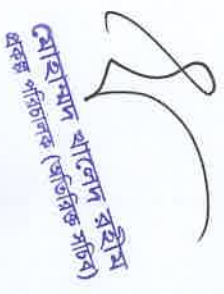 মোহাম্মদ খালেদ রহীম
প্রকল্প পরিচালক (অতিরিক্ত সচিব)